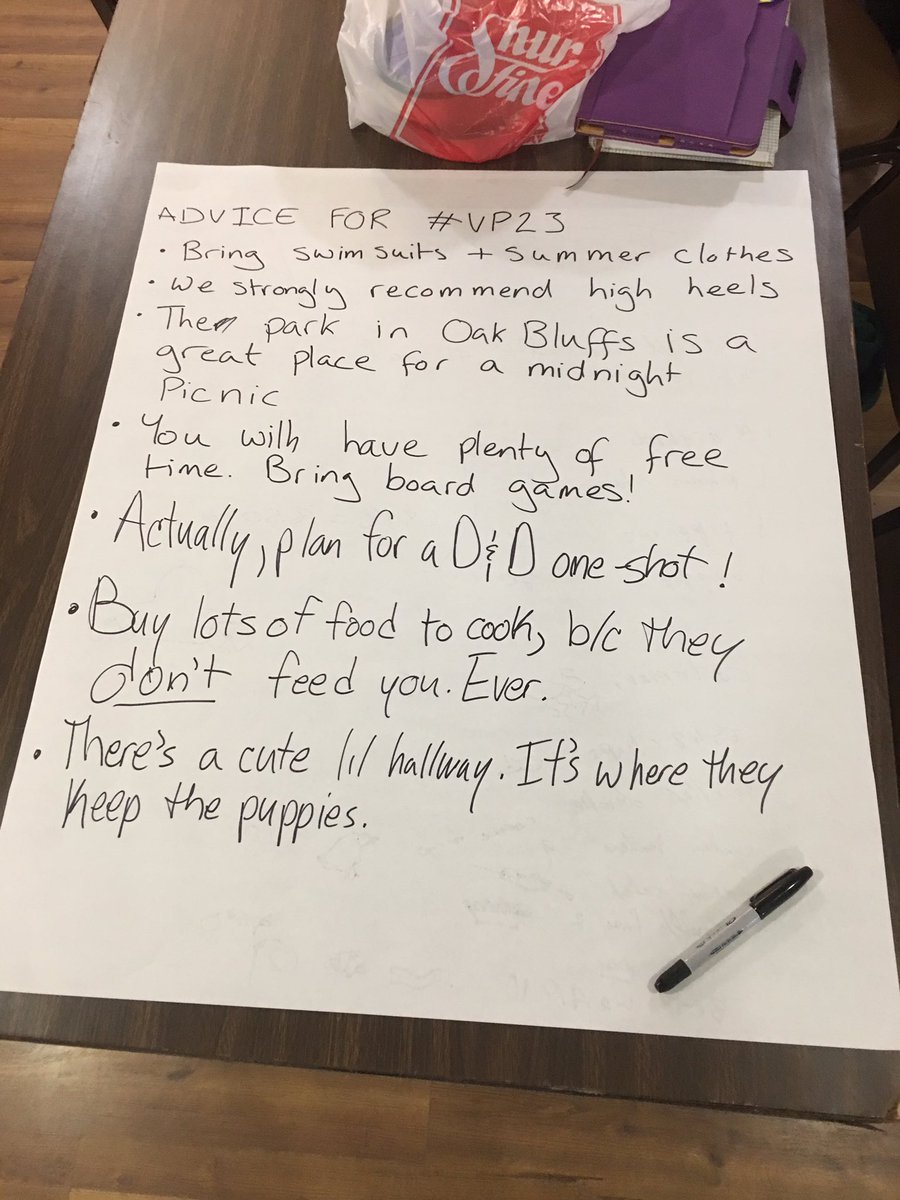 Shur
fine
ADVICE FOR #VP23
• Bring swimsuits + summer clothes
• We strongly recommend high heels
• The park in Oak Bluffs is a
great place for a midnight
Picnic
• You will have plenty of free
time. Bring board games!
• Actually, plan for a D&D one-shot!
• Buy lots of food to cook, b/c they
don't feed you. Ever.
• There's a cute lil hallway. It's where they
keep the puppies.